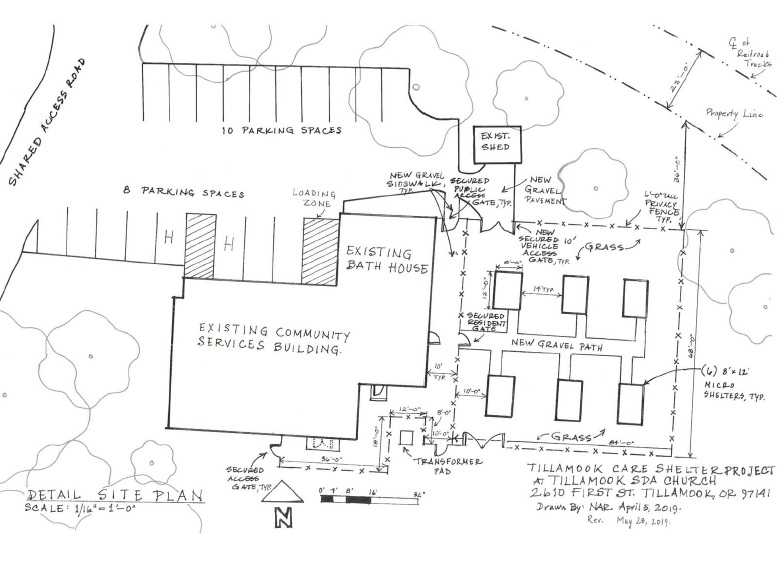 ℄ of
Railroad
Tracks
25'-0"
Property Line
SHARED ACCESS ROAD
10 PARKING SPACES
EXIST.
SHED
36'-0"
NEW GRAVEL
SIDEWALK,
TYP.
SECURED
PUBLIC
ACCESS
GATE, TYP.
NEW
GRAVEL
PAVEMENT
6'-0" TALL
PRIVACY
FENCE, TYP.
8 PARKING SPACES
LOADING
ZONE
H
H
NEW
SECURED 10'
VEHICLE
ACCESS
GATE, TYP.
GRASS
EXISTING
BATH HOUSE
8'-0"
12'-0"
14' TYP.
SECURED
RESIDENT
GATE
EXISTING COMMUNITY
SERVICES BUILDING.
NEW GRAVEL PATH
68'-0"
10'
TYP.
10'-0"
(6) 8'x12'
MICRO
SHELTERS, TYP.
12'-0"
8'-0"
18'-0"
10'-0"
GRASS
84'-0"
36'-0"
TRANSFORMER
PAD
SECURED
ACCESS
GATE, TYP.
DETAIL SITE PLAN
SCALE: 1/16" = 1'-0"
0' 4' 8' 16' 32'
N
TILLAMOOK CARE SHELTER PROJECT
AT TILLAMOOK SDA CHURCH
2610 FIRST ST. TILLAMOOK, OR 97141
Drawn By: NAR April 5, 2019.
Rev. May 23, 2019.